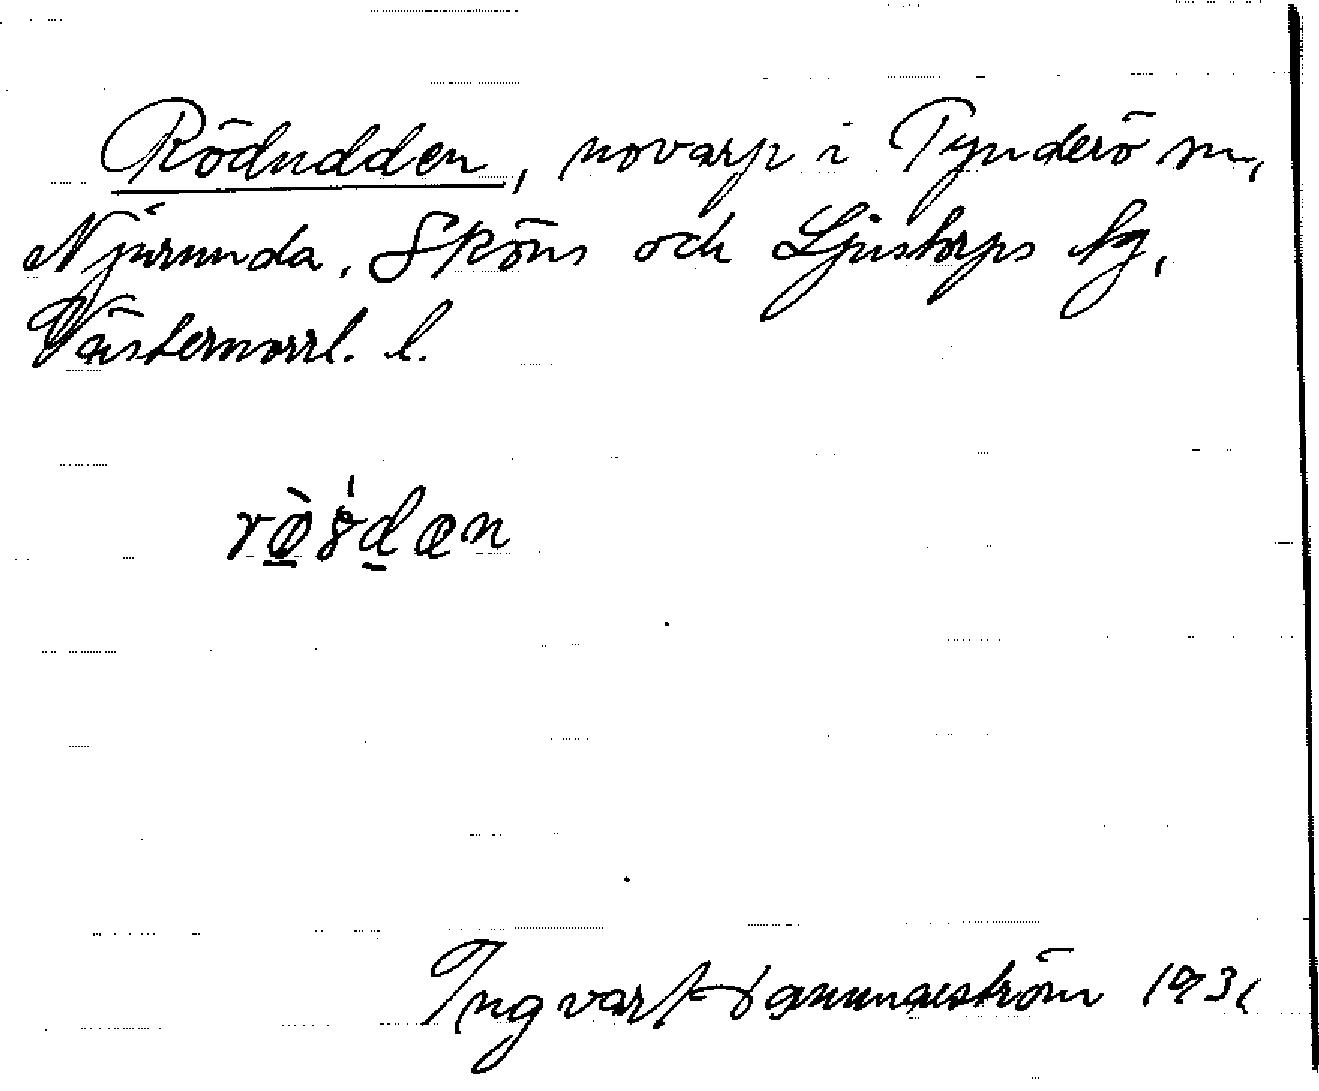 Rödudden, novarp i Tynderö sn,
Njurunda, Sköns och Ljustorps tg,
Västernorrl. l.
Ingvart 1931